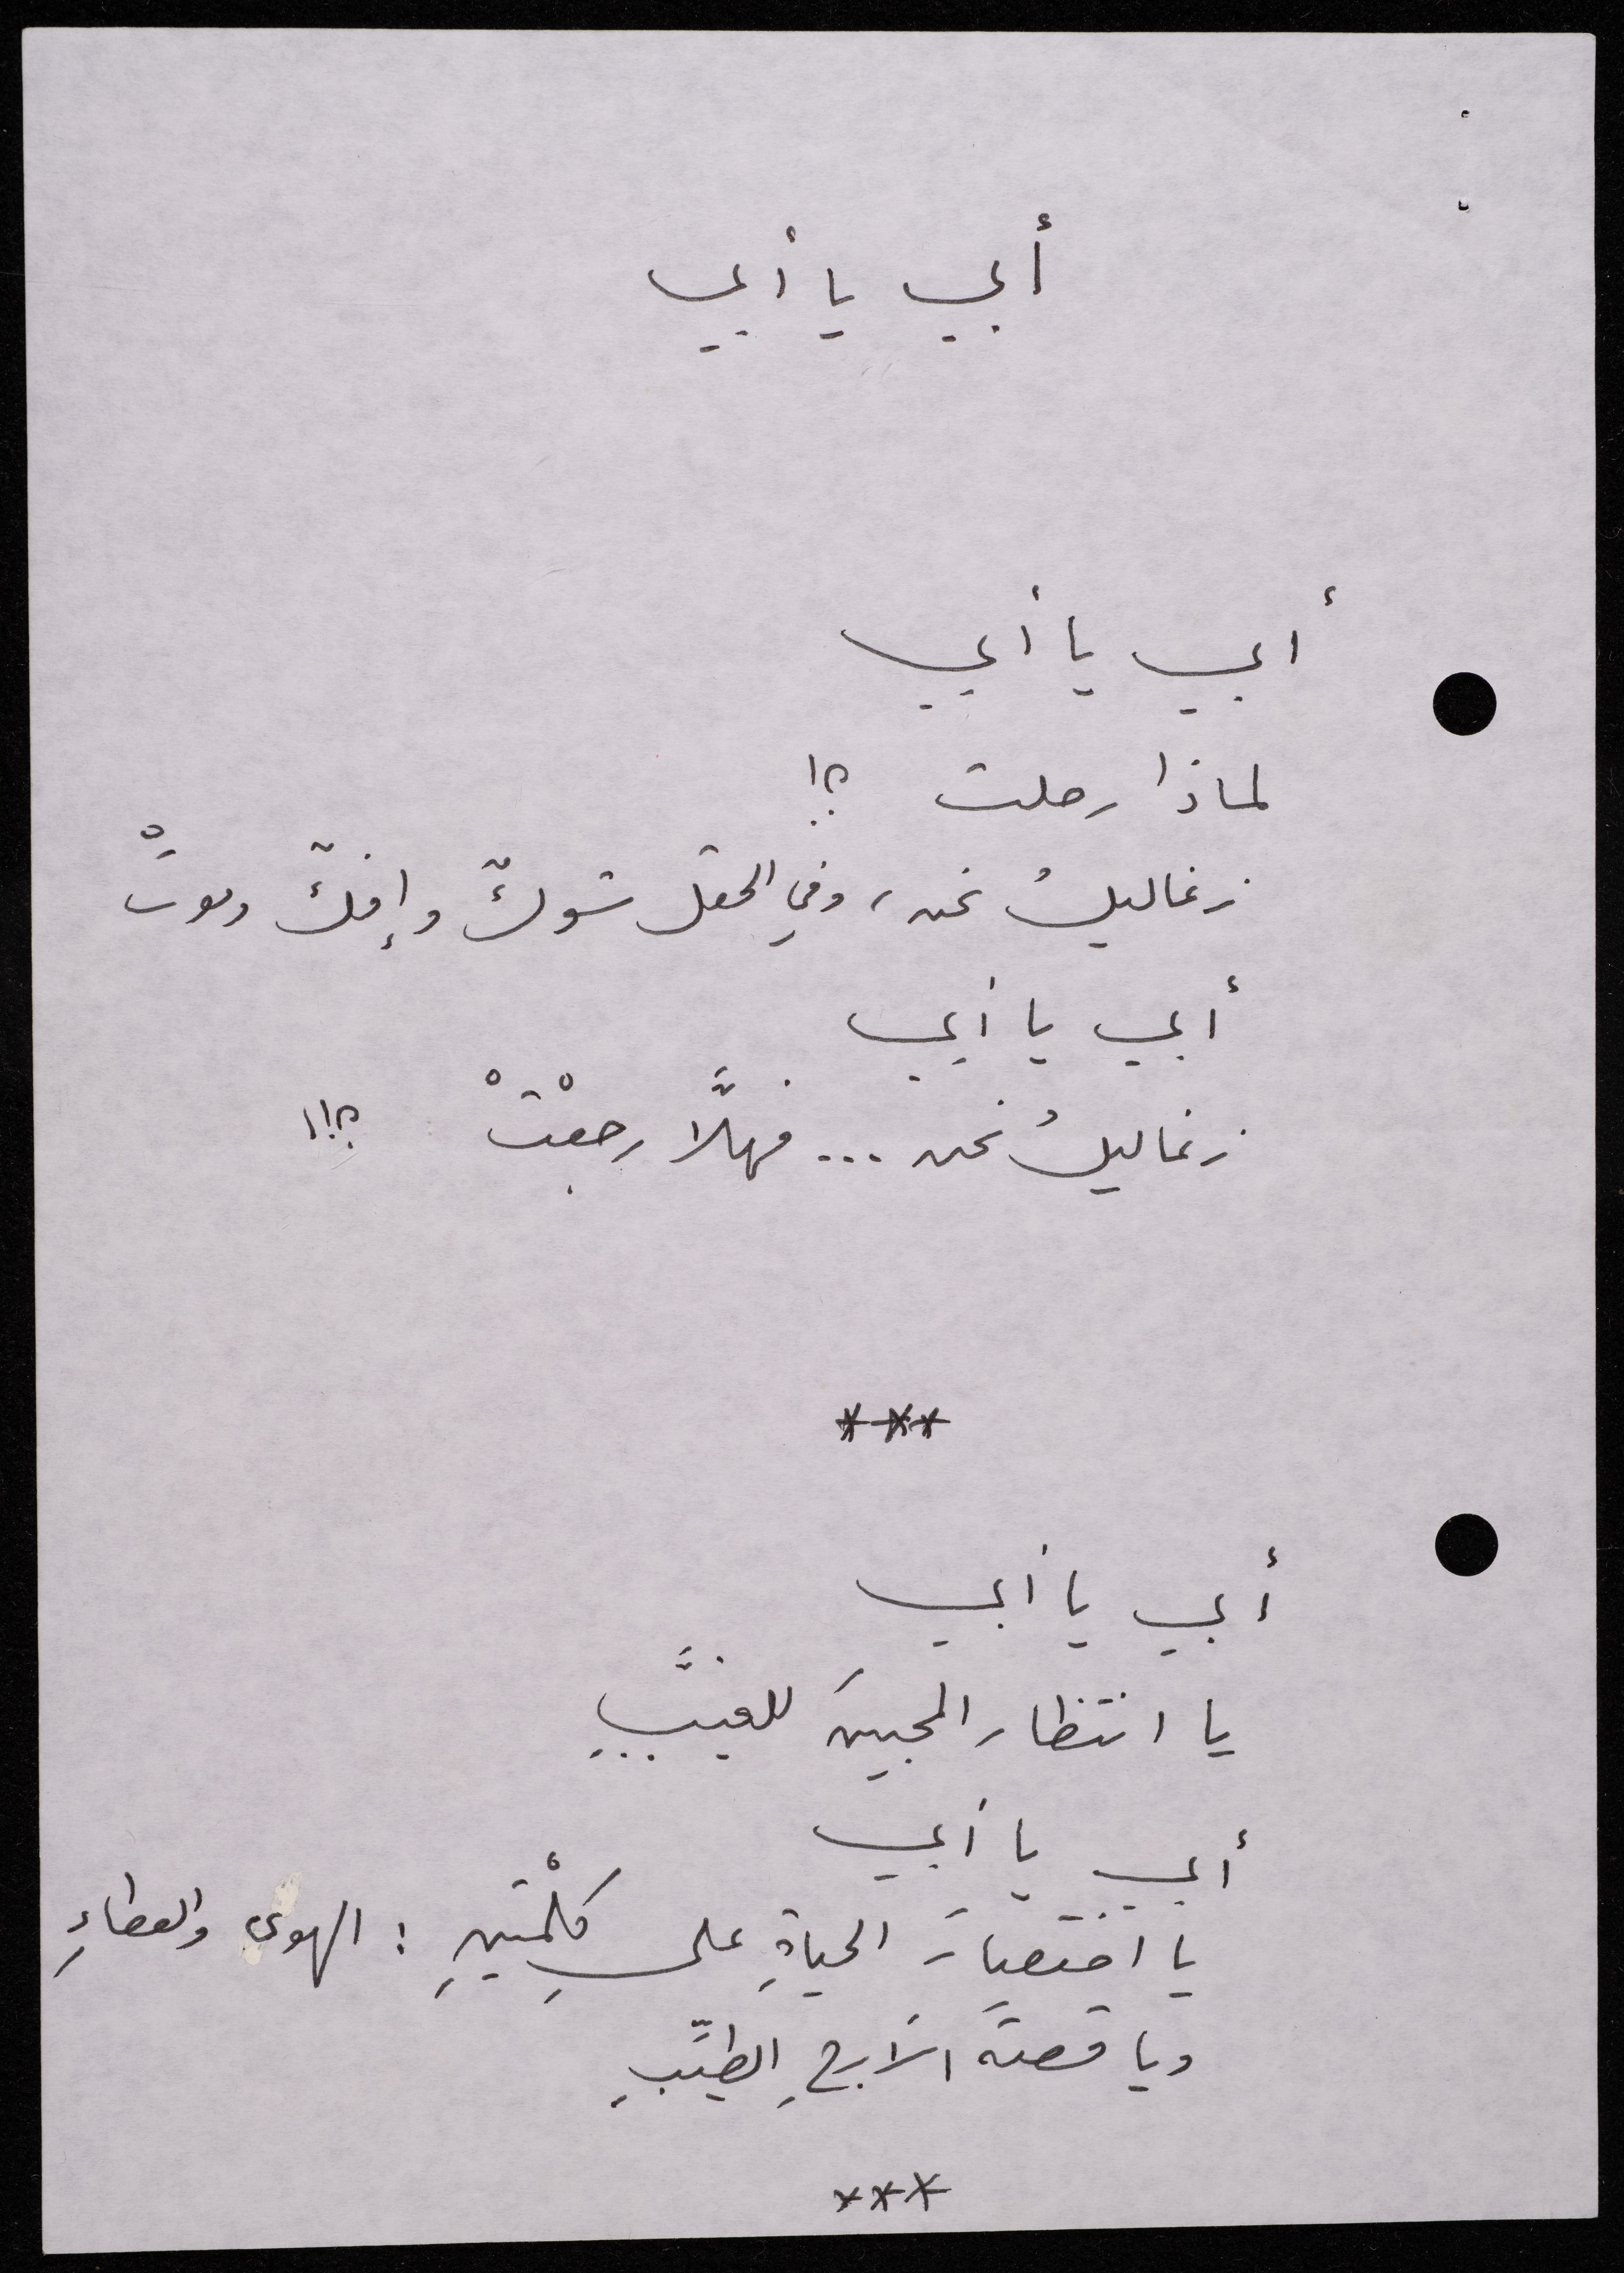 أبي يا أبي
أبي يا أبي
لماذا رحلت ؟!
زغاليلُ نحن، وفي الحقل شوكٌ وإفكٌ وموتْ
أبي يا أبي
زغاليلُ نحن ... فهلَّا رجعْتْ ؟!!
***
أبي يا أبي
يا انتظار المحبينَ للغيَّبِ
أبي يا أبي
يا اختصارَ الحياةِ على كِلْمتينِ : الهوى والعطاءِ
ويا قصة الأرجِ الطيّبِ
***